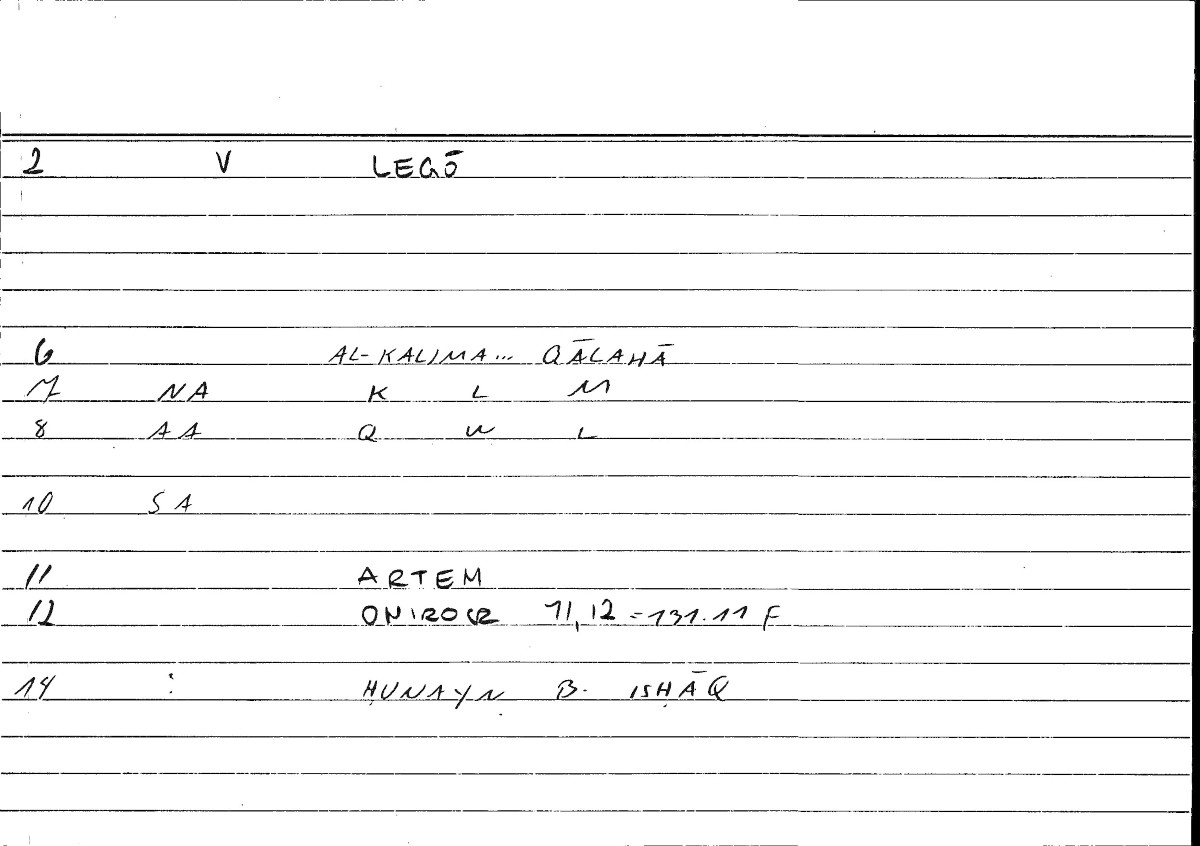 2 V LEGŌ
6 AL-KALIMA... QĀLAHĀ
7 NA K L M
8 AA Q W L
10 SA
11 ARTEM
12 ONIROCR 71,12 = 131.11 F
14 : ḤUNAYN B. ISḤĀQ